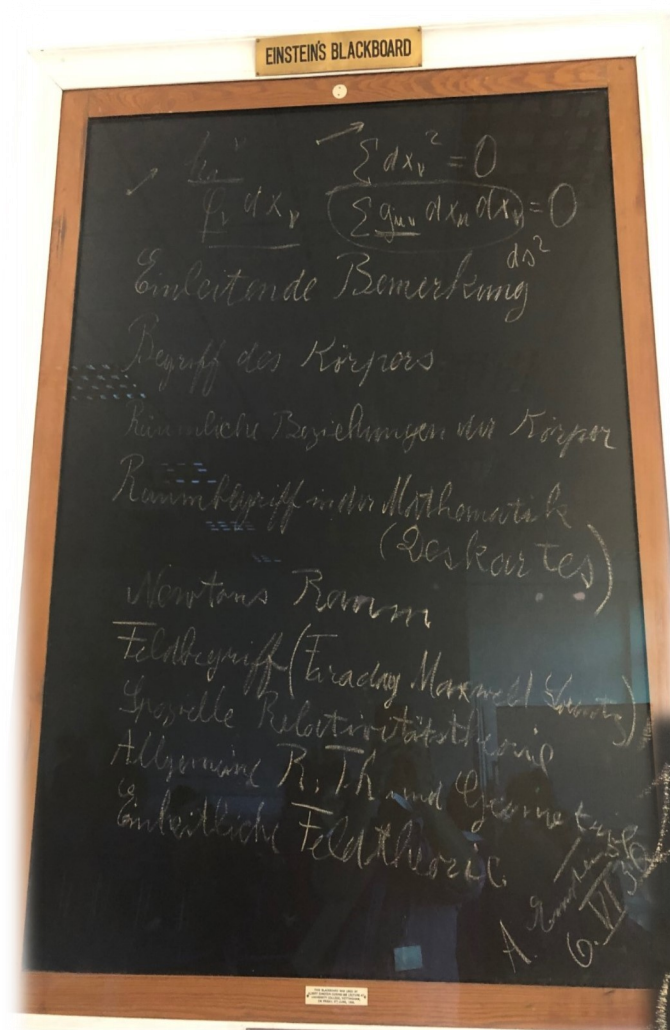 EINSTEIN'S BLACKBOARD
Σ dxν² = 0
φν dxν Σ gμν dxμ dxν = 0
ds²
Einleitende Bemerkung
Begriff des Körpers
Räumliche Beziehungen der Körper
Raumbegriff in der Mathematik
(Deskartes)
Newtons Raum
Feldbegriff (Faraday Maxwell Lorentz)
Spezielle Relativitätstheorie
Allgemeine R. Th. und Geometrie
Einheitliche Feldtheorie.
A. Einstein
6. VI 30